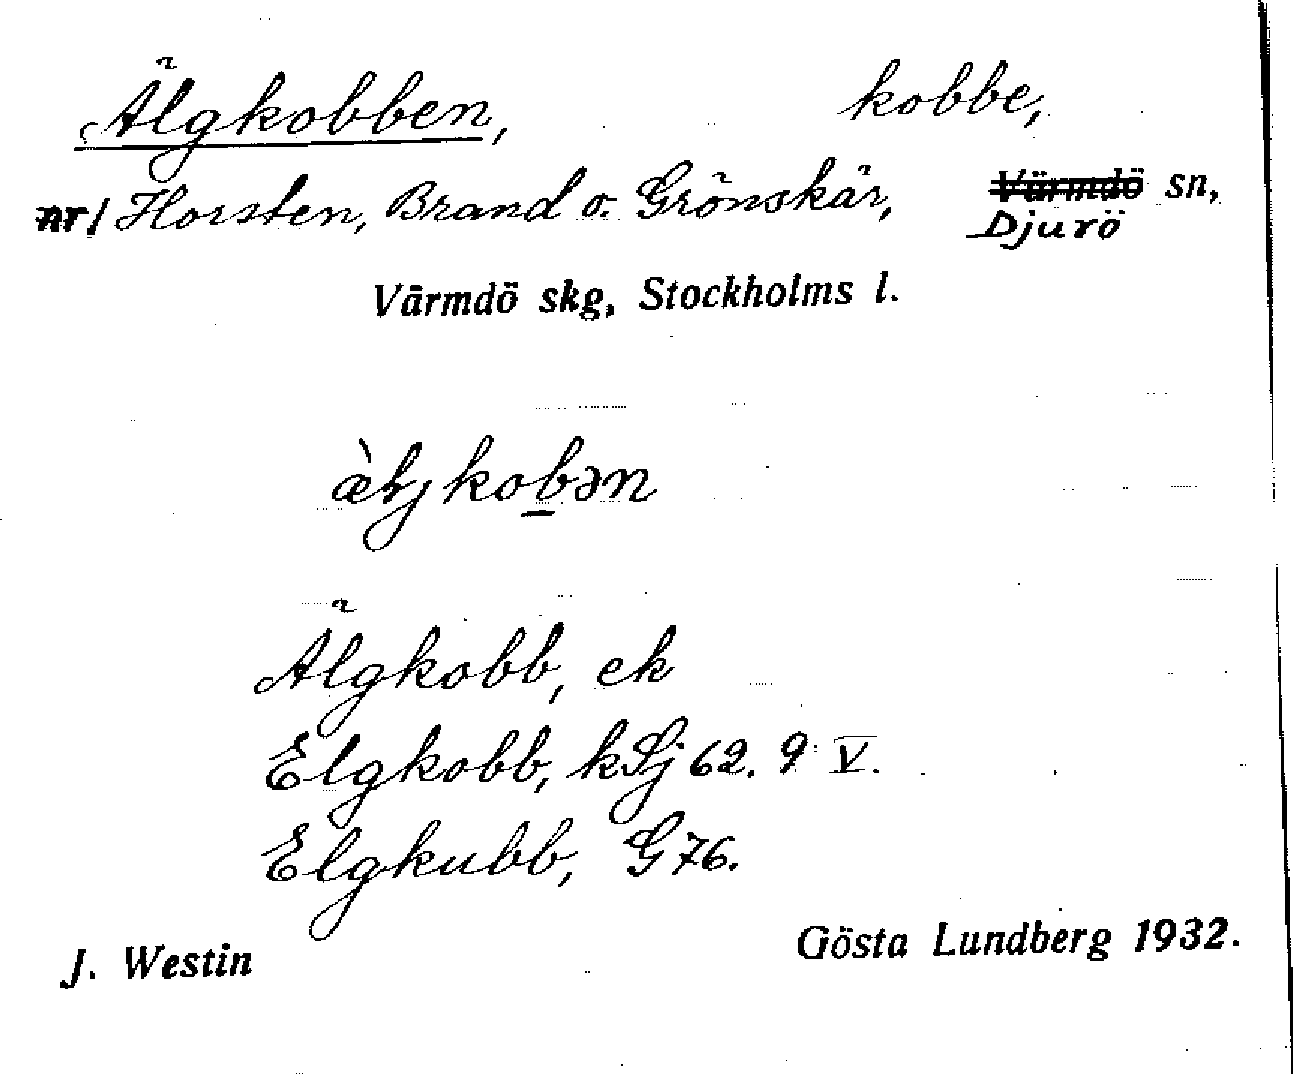 Älgkobben, kobbe,
nr/ Horsten, Brand o. Grönskär, Värmdö sn,
Djurö
Värmdö skg, Stockholms l.
æ̀lgkobən
Älgkobb, ek
Elgkobb, kSj 62. 9 V.
Elgkubb, G 76.
J. Westin Gösta Lundberg 1932.